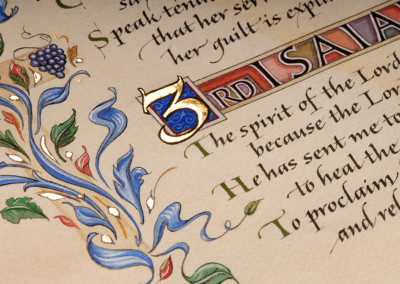 Speak ten
that her ser
her guilt is expi
3RD ISAIA
The spirit of the Lord
because the Lor
He has sent me to
to heal the
To proclaim
and rel